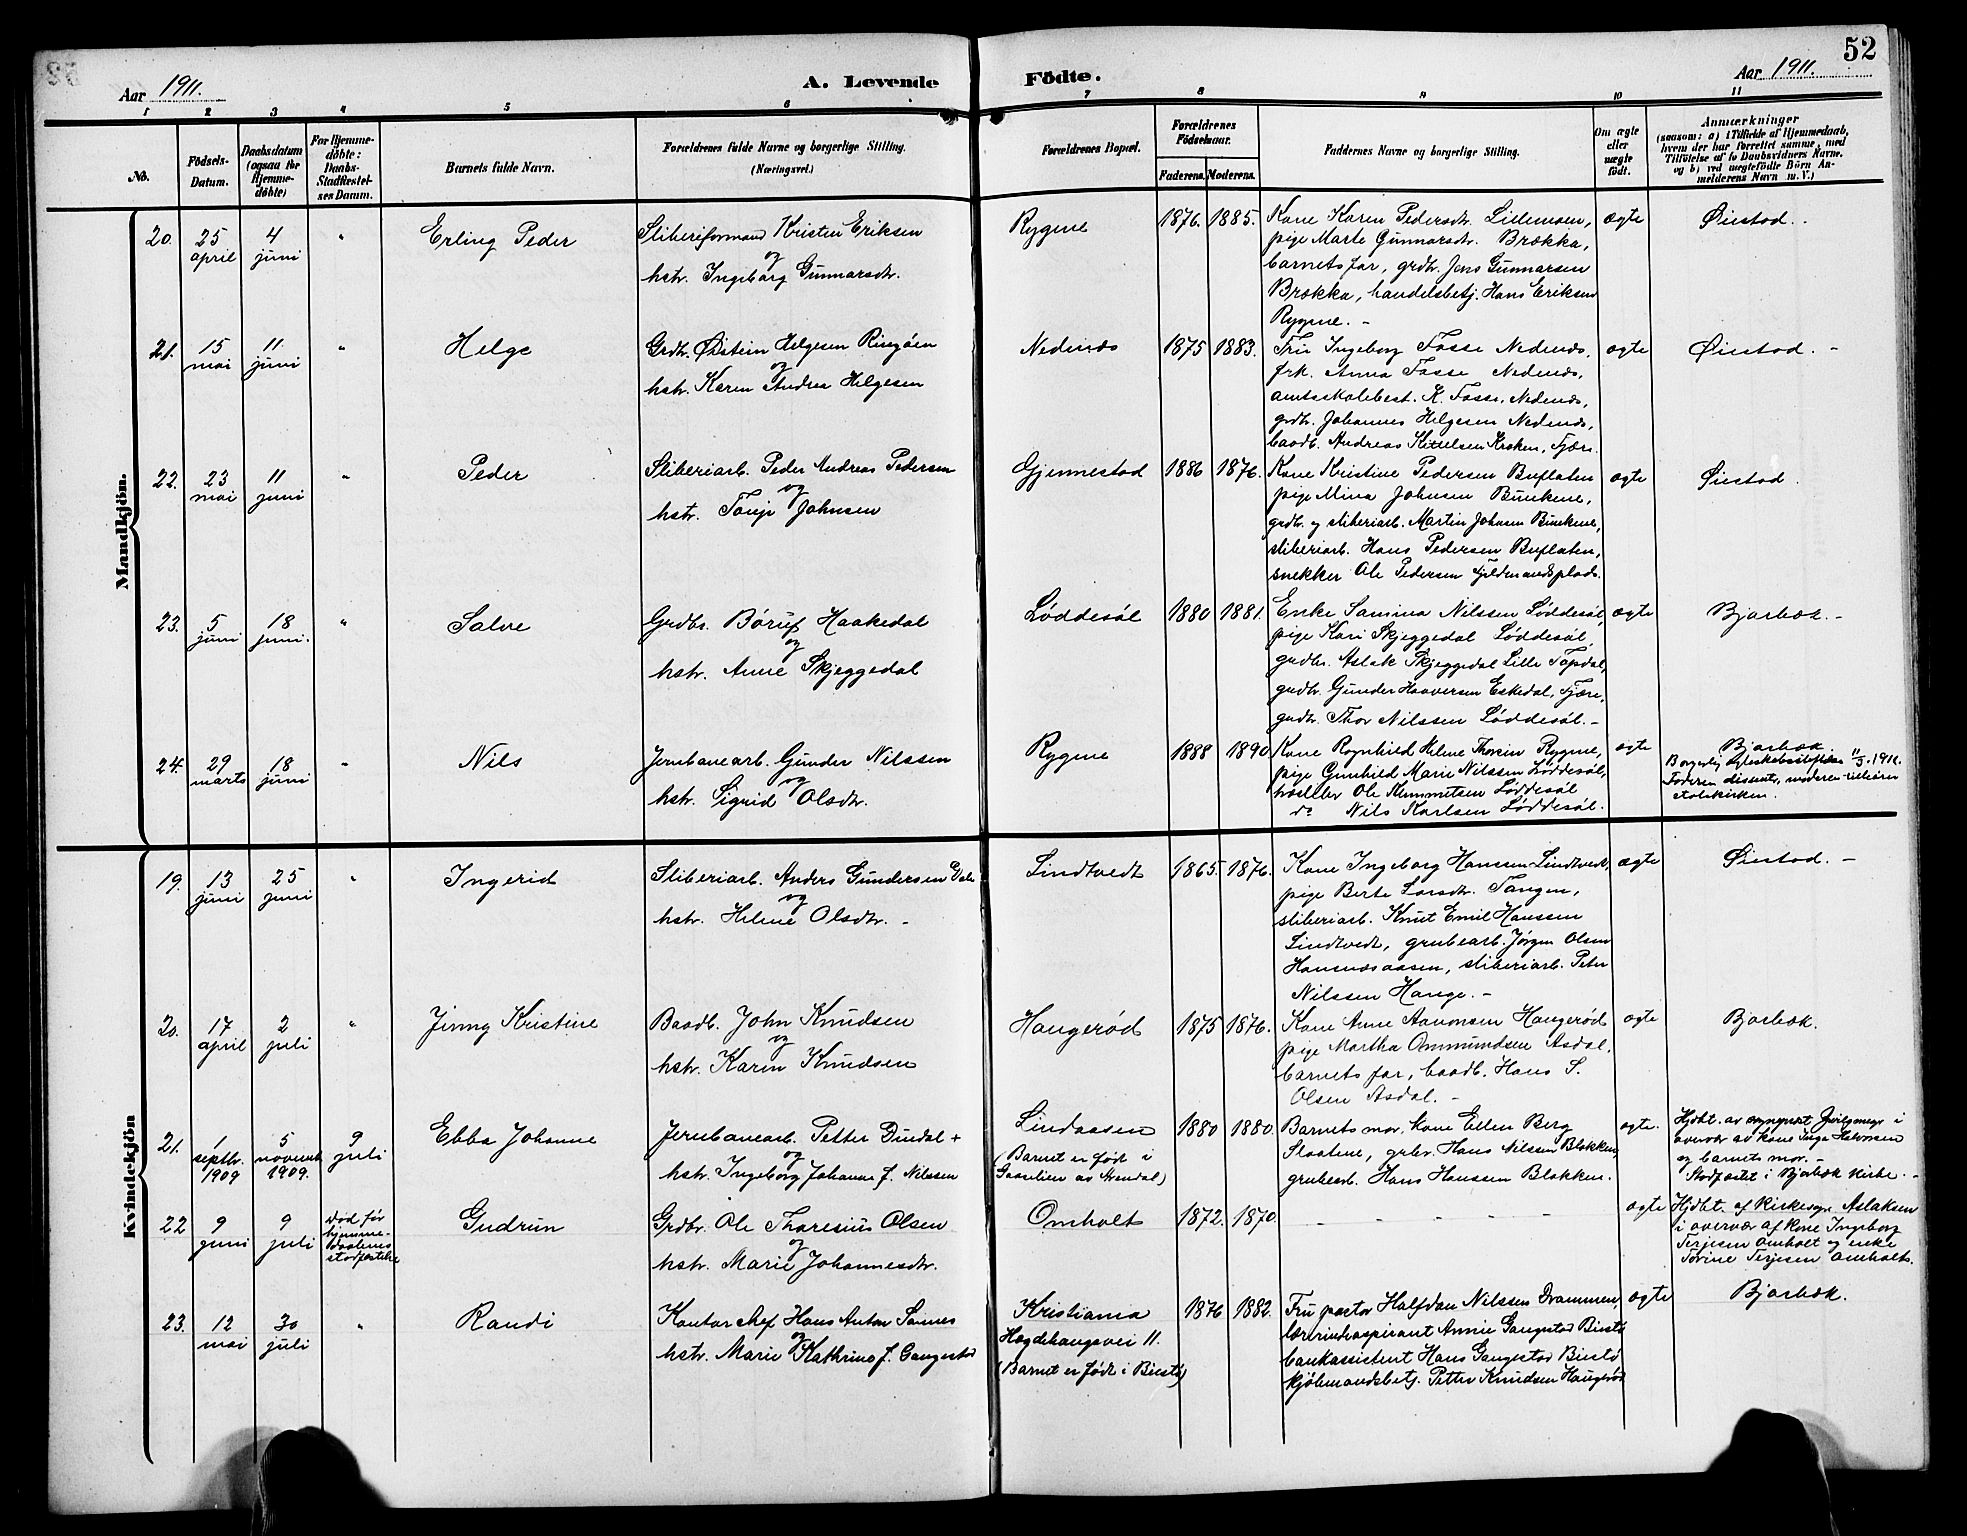 52
Aar 1911.
A. Levende Födte.
Aar 1911.
1 2 3 4 5 6 7 8 9 10 11
No.
Födsels-Datum.
Daabsdatum (ogsaa for Hjemmedöbte)
For Hjemmedöbte: Daabs-Stadfæstelses Datum.
Barnets fulde Navn.
Forældrenes fulde Navne og borgerlige Stilling.
(Næringsvei.)
Forældrenes Bopæl.
Forældrenes Födselsaar.
Faderens. Moderens.
Faddernes Navne og borgerlige Stilling.
Om ægte eller uægte födt.
Anmærkninger
(saasom: a) i Tilfælde af Hjemmedaab,
hvem der har forrettet samme, med
Tilföielse af to Daabsvidners Navne.
og b) ved uægtefödte Börn An-
melderens Navn m. V.)
Mandkjön.
20. 25 april 4 juni " Erling Peder
Sliberiformand Kristen Eriksen
og
hstr. Ingeborg Gunnarsdtr.
Rygene 1876. 1885.
Kone Karen Pedersdtr. Lillemoen,
pige Marte Gunnarsdtr. Brække,
barnets far, grdbr. Jens Gunnarsen
Brække, handelsbetj. Hans Eriksen
Rygene. -
ægte Øiestad. -
21. 15 mai 11. juni " Helge
Grdbr. Østein Helgesen Ringøen
og
hstr. Karen Andrea Helgesen
Nedenæs 1875 1883.
Fru Ingeborg Fosse Nedenæs,
frk. Anna Fosse Nedenæs,
amtsskolebest. K. Fosse, Nedenæs,
grdbr. Johannes Helgesen Nedenæs,
baadb. Andreas Kittelsen Kroken, Fjære.
ægte Øiestad. -
22. 23 mai 11 juni " Peder
Sliberiarb. Peder Andreas Pedersen
og
hstr. Tonje Johnsen
Gjennestad 1886 1876.
Kone Kristine Pedersen Buflaten
pige Mina Johnsen Bunkene,
grdb. og sliberiarb. Martin Johnsen Bunkene,
sliberiarb. Hans Pedersen Buflaten,
snekker Ole Pedersen Fjeldmandsplads.
ægte Øiestad.
23. 5 juni 18 juni. " Salve
Grdbr. Børuf Haakedal
og
hstr. Anne Skjeggedal
Løddesøl 1880 1881.
Enke Samina Nilssen Løddesøl,
pige Kari Skjeggedal Løddesøl,
grdbr. Aslak Skjeggedal Lille Topdal,
grdbr. Gunder Haaversen Eskedal, Fjære,
grdbr. Thor Nilssen Løddesøl. -
ægte Bjorbæk. -
24. 29 marts 18 juni " Nils
Jernbanearb. Gunder Nilssen
og
hstr. Sigrid Olsdtr.
Rygene 1888 1890
Kone Ragnhild Helene Thorsen Rygene,
pige Gunhild Marie Nilssen Løddesøl,
Ole Klemmetsen Løddesøl
do Nils Karlsen Løddesøl.
ægte Bjorbæk.
Borgerlig Ægteskabsstiftelse 11/3. 1911.
Faderen dissenter, moderen tilhører
statskirken.
Kvindekjön
19. 13 juni 25 juni " Ingerid
Sliberiarb. Anders Gundersen Dale
og
hstr. Helene Olsdtr. -
Lindtvedt 1865. 1876.
Kone Ingeborg Hanssen Lindtvedt,
pige Berte Larsdtr. Tangen,
sliberiarb. Knut Emil Hanssen
Lindtvedt, grubearb. Jørgen Olsen
Hansnesaasen, sliberiarb. Peter
Nilssen Hauge. -
ægte Øiestad. -
20. 17 april 2 juli " Jinny Kristine
Baadb. John Knudsen
og
hstr. Karen Knudsen
Haugerød 1875 1876.
Kone Anne Aanonsen Haugerød
pige Martha Ommundsen Asdal,
barnets far, baadb. Hans S.
Olsen Asdal. -
ægte Bjorbæk.
21. 1 septbr. 1909 5 novembr. 1909. 9 juli Ebba Johanne
Jernbanearb. Petter Dindal +
og
hstr. Ingeborg Johanne f. Nilssen
Lindaasen
(Barnet er født i
Gaaselien av Arendal)
1880 1880.
Barnets mor, kone Ellen Berg
Slaatene, grbr. Hans Nilssen Blakken,
grubearb. Hans Hanssen Blakken.
ægte.
Hjdbt. av
overvær av kone Inga Halvorsen
og barnets mor. -
Stadfæstet i Bjorbæk kirke. -
22 9 juni 9 juli
Død før hjemmedaabens stadfæstelse
Gudrun
Grdbr. Ole Tharesius Olsen
og
hstr. Marie Johannesdtr.
Omholt 1872. 1870. - - - - - -
ægte
Hjdbt. af Kirkesgr. Aslaksen
i overvær af kone Ingeborg
Terjesen Omholt og enke
Torine Terjesen Omholt.
23. 12 mai 30 juli " Randi
Kontorchef Hans Anton Sannes
og
hstr. Marie Kathrine f. Gangestad
Kristiania
Hegdehaugsvei 11.
(Barnet er født i Biestø)
1876 1882.
Fru pastor Halfdan Nilssen Drammen,
lærerindeaspirant Annie Gangestad Biestø
bankassistent Hans Gangestad Biestø
kjøbmandsbetj. Petter Knudsen Haugerød
ægte Bjorbæk.